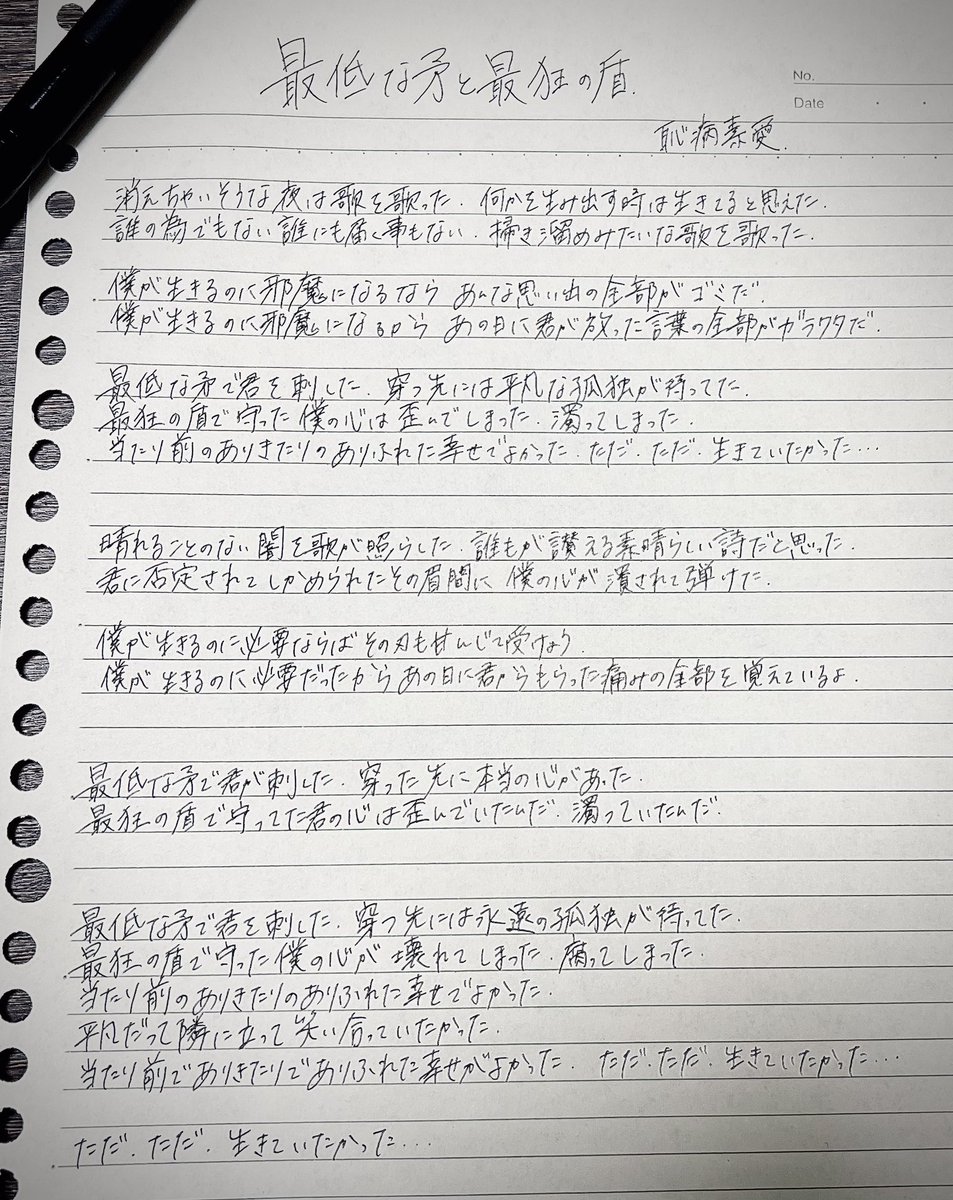 最低な矛と最狂の盾.
No.
Date
恥病素愛.
消えちゃいそうな夜は歌を歌った. 何かを生み出す時は生きてると思えた.
誰の為でもない誰にも届く事もない. 掃き溜めみたいな歌を歌った.
僕が生きるのに邪魔になるなら あんな思い出の全部がゴミだ.
僕が生きるのに邪魔になるから あの日に君が放った言葉の全部がガラクタだ.
最低な矛で君を刺した. 穿つ先には平凡な孤独が待ってた.
最狂の盾で守った僕の心は歪んでしまった. 濁ってしまった.
当たり前のありきたりのありふれた幸せでよかった. ただ. ただ. 生きていたかった...
晴れることのない闇を歌が照らした. 誰もが讃える素晴らしい詩だと思った.
君に否定されてしかめられたその眉間に 僕の心が潰されて弾けた.
僕が生きるのに必要ならばその刃も甘んじて受けよう.
僕が生きるのに必要だったから あの日に君からもらった痛みの全部を覚えているよ.
最低な矛で君が刺した. 穿った先に本当の心があった.
最狂の盾で守ってた君の心は歪んでいたんだ. 濁っていたんだ.
最低な矛で君を刺した. 穿つ先には永遠の孤独が待ってた.
最狂の盾で守った僕の心が 壊れてしまった. 腐ってしまった.
当たり前のありきたりのありふれた幸せでよかった.
平凡だって隣に立って笑い合っていたかった.
当たり前でありきたりでありふれた幸せがよかった. ただ. ただ. 生きていたかった...
ただ. ただ. 生きていたかった...